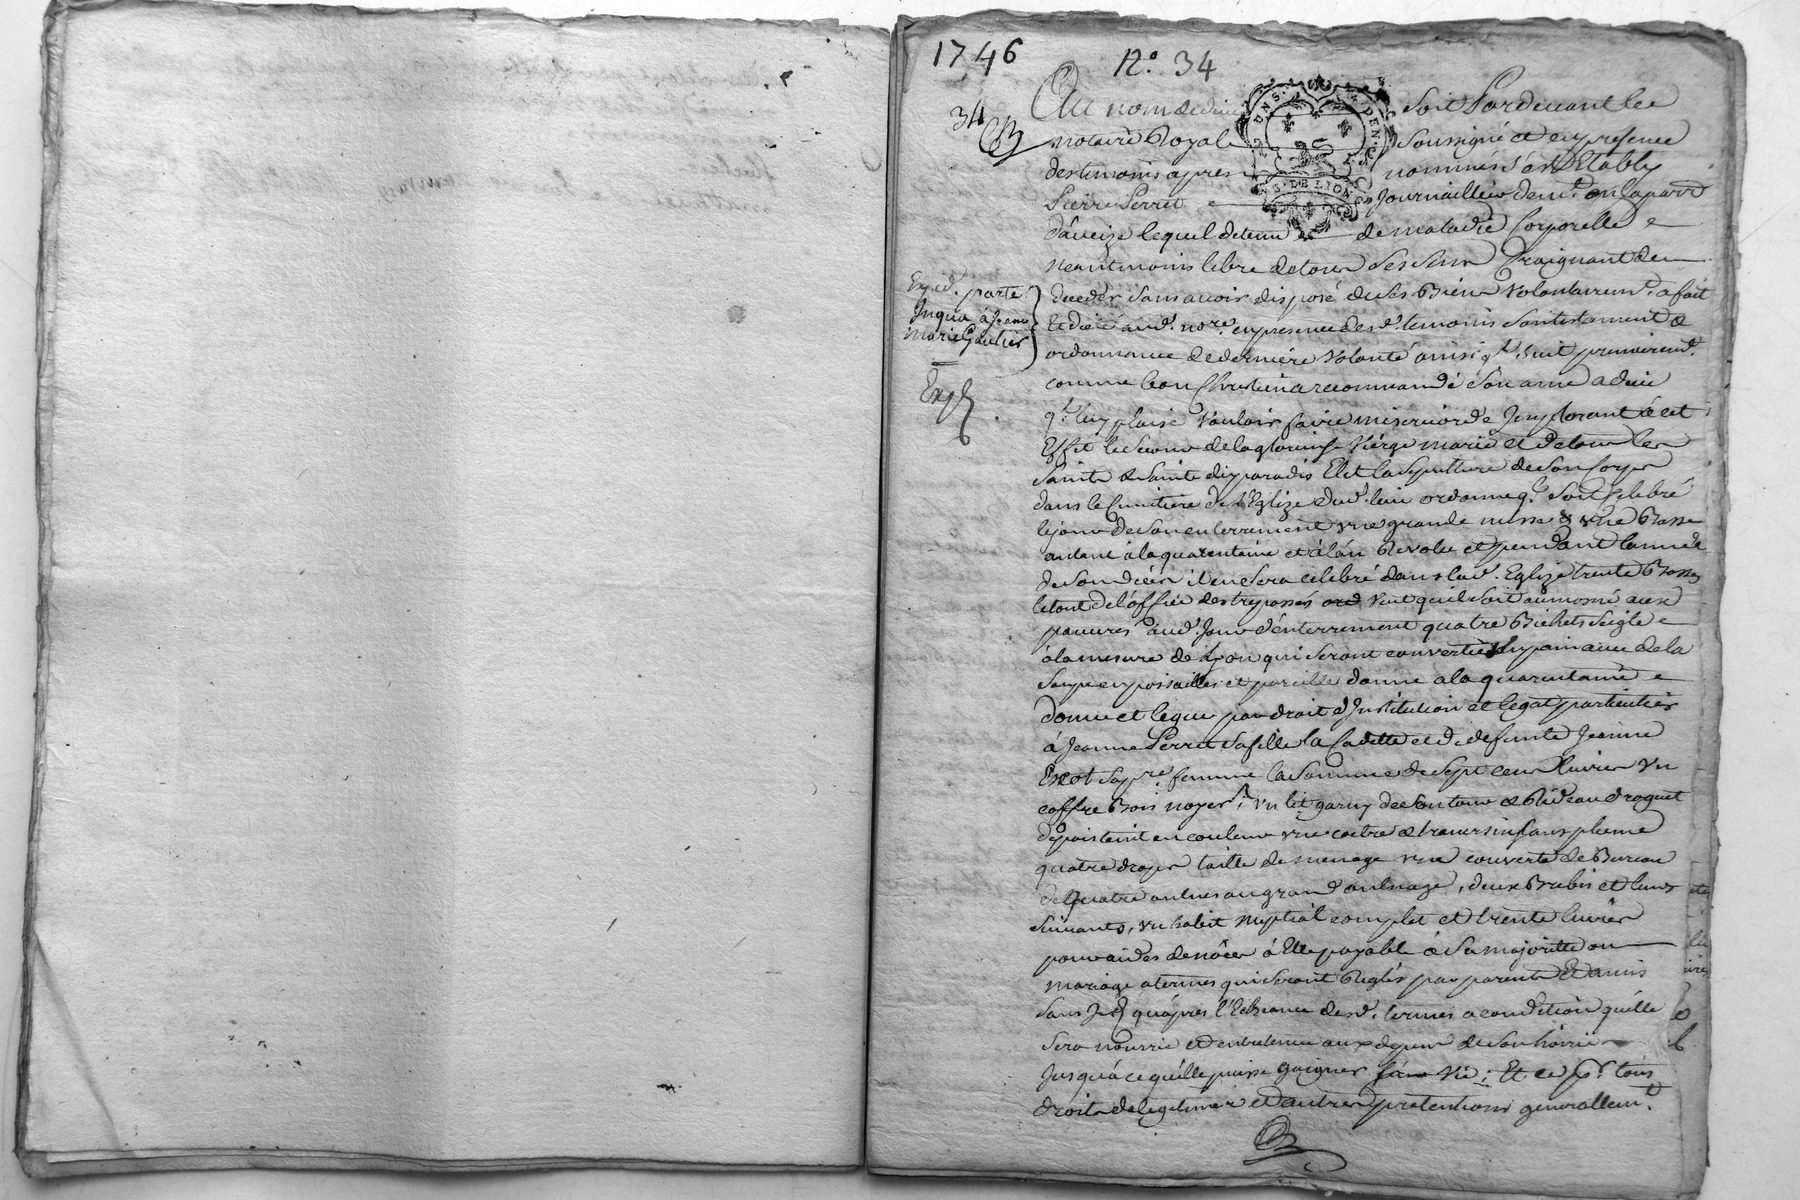 1746
N.° 34
34
Au nom de dieu soit Pardevant le
notaire Royal soussigné et en presence
des temoins apres nommés s'est Etably
Pierre Perret journaillier dem.t en la parr.
d'aveize lequel detenu de maladie Corporelle
neantmoins libre de tous ses sens Craignant de
deceder sans avoir disposé de ses Biens volontairem.t a fait
Et dicté aud. no.re en presence desd. temoins son testament &
ordonnance de derniere volonté ainsi q.l suit premierem.t
comme bon Chretien a recommandé son ame a dieu
q.l luy plaise vouloir faire misericorde Implorant a cet
Effet le secours de la glorieuse Vierge marie et de tous les
Saints & Saintes du paradis Elit la sepulture de son Corps
dans le Cimitiere de l'Eglize dud. lieu ordonne q.l soit celebré
le jour de son enterrement une grande messe & une Basse
autant a la quarantaine et a l'an Revolu et pendant l'année
de son deces il en sera celebré dans lad. Eglize trente Basses
le tout de l'office des trepassés veut qu'il soit aumosné aux
pauvres aud. Jour d'enterrement quatre Bichets seigle
a la mesure de Lyon qui seront convertis en pain avec de la
soupe en et pareille donne a la quarantaine
donne et legue par droit d'Institution et legat particulier
à Jeanne Perret sa fille la Cadette et de defunte Jeanne
sa p.re femme la somme de sept cens livres un
coffre Bois noyer, un lit garny de son tour & Rideau droguet
teint en couleur une coitre & traversin sans plume
quatre draps taille de menage une couverte de Bureau
de quatre aulnes au grand aulnage, deux Brebis et leurs
suivants, un habit nuptial complet et trente livres
pour aides de nôces à Elle payable à sa majorité ou
mariage a termes qui seront Reglés par parents Et amis
sans qu'apres l'Echeance desd. termes a condition qu'elle
sera nourrie et entretenue aux depens de son hoirie
Jusqu'a ce qu'elle puisse gaigner sa vie; Et ce p.r tous
droits de legitime et autres pretentions generallem.t
Exp.ed. parte
In qua à Jeanne
marie Gautier
Exp.